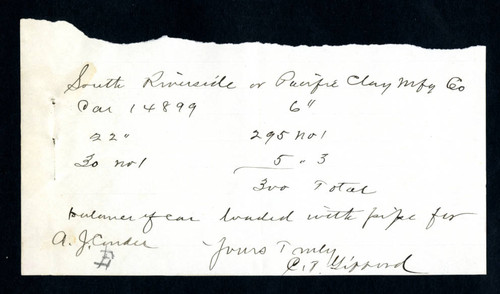 South Riverside or Pacific Clay Mfg Co
Car 14899 6"
22" 295 no 1
30 no 1 5 " 3
300 Total
balance of car loaded with pipe for
A. J.
Yours Truly
C. T. Gifford